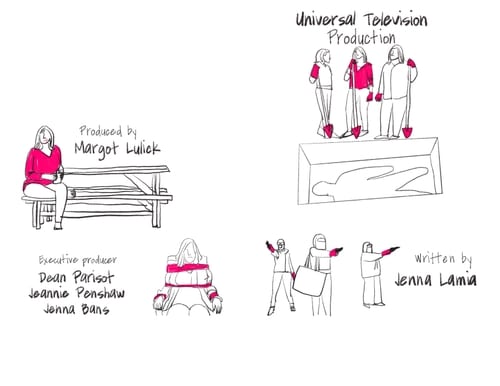 Universal Television
Production
Produced by
Margot Lulick
Executive producer
Dean Parisot
Jeannie Renshaw
Jenna Bans
Written by
Jenna Lamia